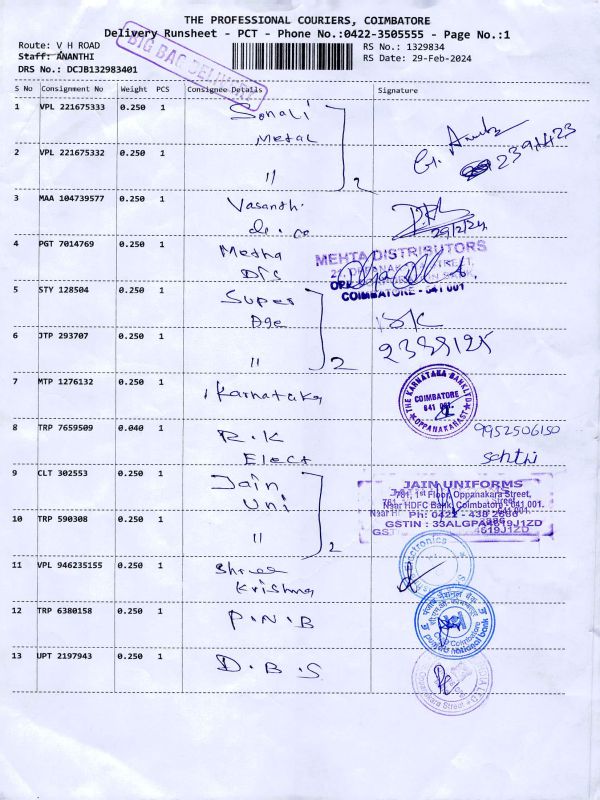 THE PROFESSIONAL COURIERS, COIMBATORE
Delivery Runsheet - PCT - Phone No.:0422-3505555 - Page No.:1
Route: V H ROAD
Staff: ANANTHI
DRS No.: DCJB132983401
BIG BAG DELIVERY
RS No.: 1329834
RS Date: 29-Feb-2024
S No Consignment No Weight PCS Consignee Details Signature
1 VPL 221675333 0.250 1 Sonali
Metal
2 VPL 221675332 0.250 1 " 2
3 MAA 104739577 0.250 1 Vasantha
29/2/24
4 PGT 7014769 0.250 1 Mehta
DIS
MEHTA DISTRIBUTORS
COIMBATORE - 641 001
5 STY 128504 0.250 1 Super
Age
6 JTP 293707 0.250 1 " 2
7 MTP 1276132 0.250 1 Karnataka
THE KARNATAKA BANK LTD
COIMBATORE
641 001
8 TRP 7659509 0.040 1 R.K
Elect
9952506150
9 CLT 302553 0.250 1 Jain
Uni
JAIN UNIFORMS
781, 1st Floor, Oppanakara Street,
Near HDFC Bank, Coimbatore - 641 001.
GSTIN : 33ALGPA4619J1ZD
10 TRP 590308 0.250 1 " 2
11 VPL 946235155 0.250 1 Shree
Krishna
12 TRP 6380158 0.250 1 P.N.B
punjab national bank
13 UPT 2197943 0.250 1 D.B.S